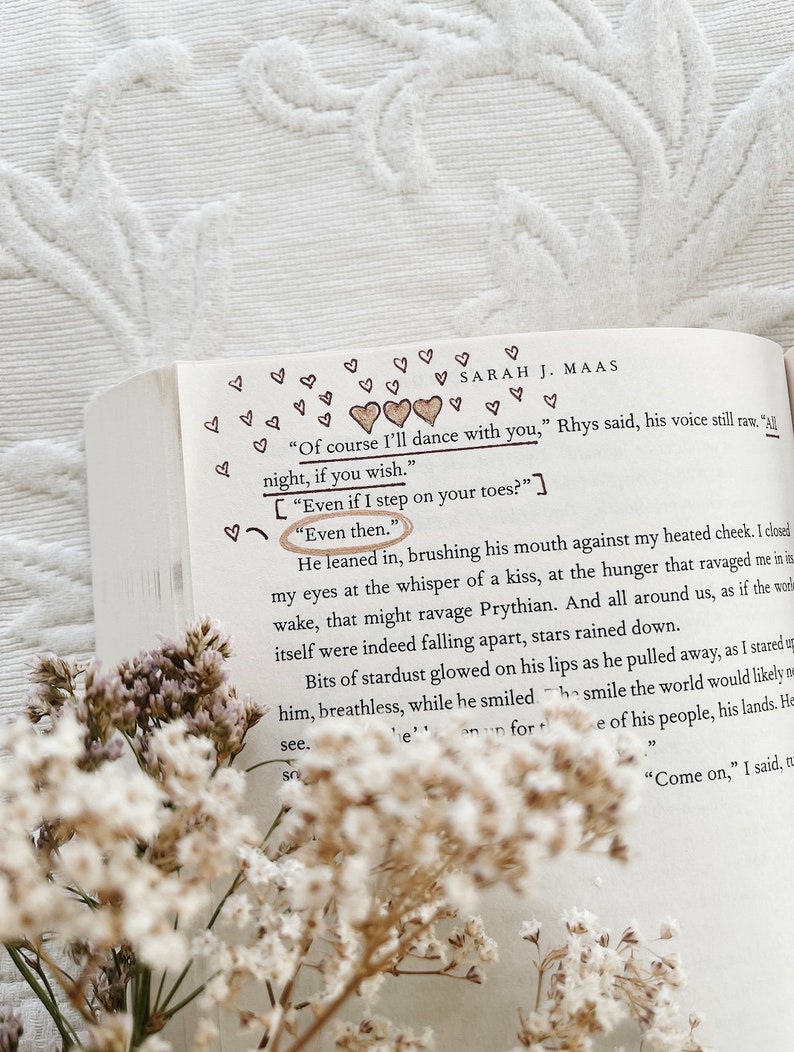 SARAH J. MAAS
“Of course I’ll dance with you,” Rhys said, his voice still raw. “All
night, if you wish.”
[ “Even if I step on your toes?” ]
“Even then.”
He leaned in, brushing his mouth against my heated cheek. I closed
my eyes at the whisper of a kiss, at the hunger that ravaged me in its
wake, that might ravage Prythian. And all around us, as if the world
itself were indeed falling apart, stars rained down.
Bits of stardust glowed on his lips as he pulled away, as I stared up
him, breathless, while he smiled. The smile the world would likely
see. of his people, his lands. He
”
“Come on,” I said,